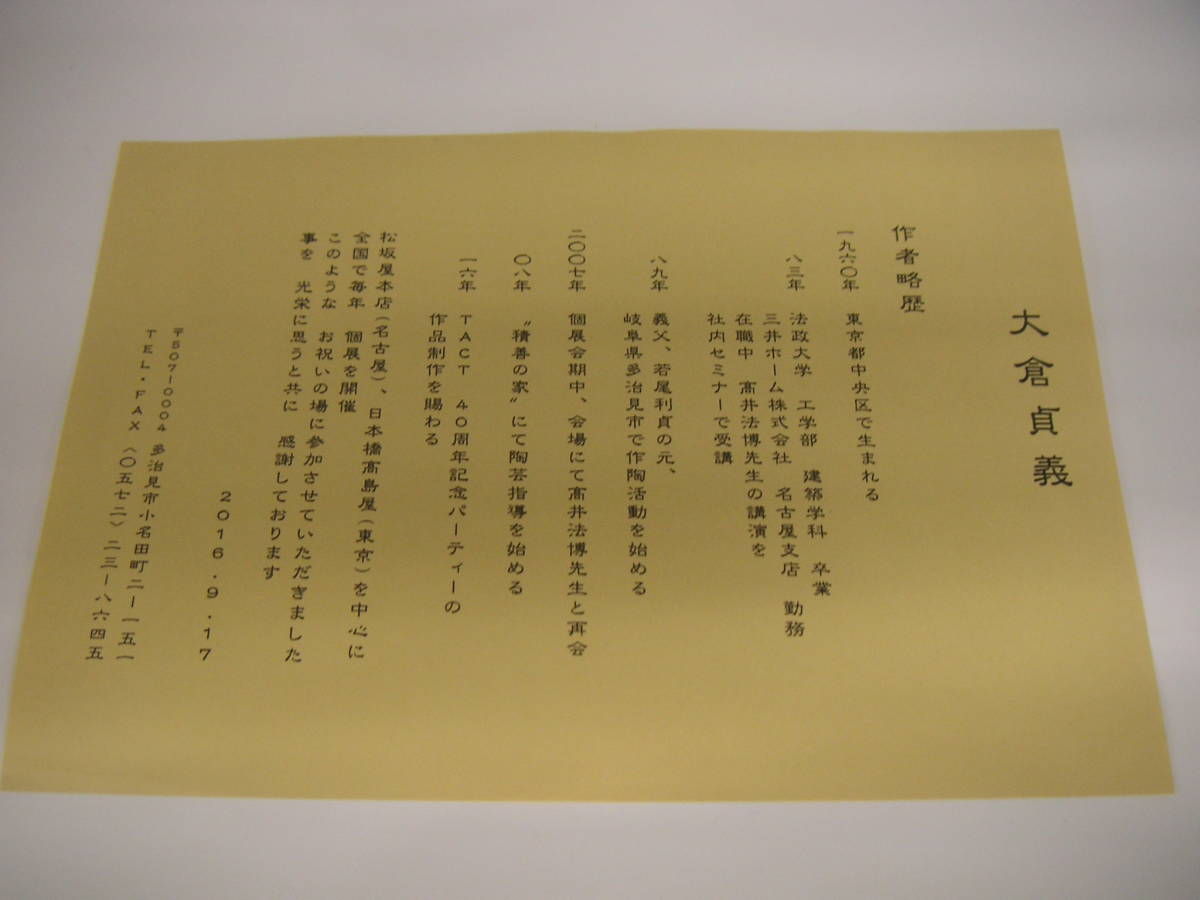 大倉貞義
作者略歴
一九六〇年 東京都中央区で生まれる
八三年 法政大学 工学部 建築学科 卒業
三井ホーム株式会社 名古屋支店 勤務
在職中 髙井法博先生の講演を
社内セミナーで受講
八九年 義父、若尾利貞の元、
岐阜県多治見市で作陶活動を始める
二〇〇七年 個展会期中、会場にて髙井法博先生と再会
〇八年 “積善の家”にて陶芸指導を始める
一六年 TACT 40周年記念パーティーの
作品制作を賜わる
松坂屋本店(名古屋)、日本橋髙島屋(東京)を中心に
全国で毎年 個展を開催
このような お祝いの場に参加させていただきました
事を 光栄に思うと共に 感謝しております
2016.9.17
〒507-0004 多治見市小名田町二-一五一
TEL・FAX (〇五七二)二三-八六四五